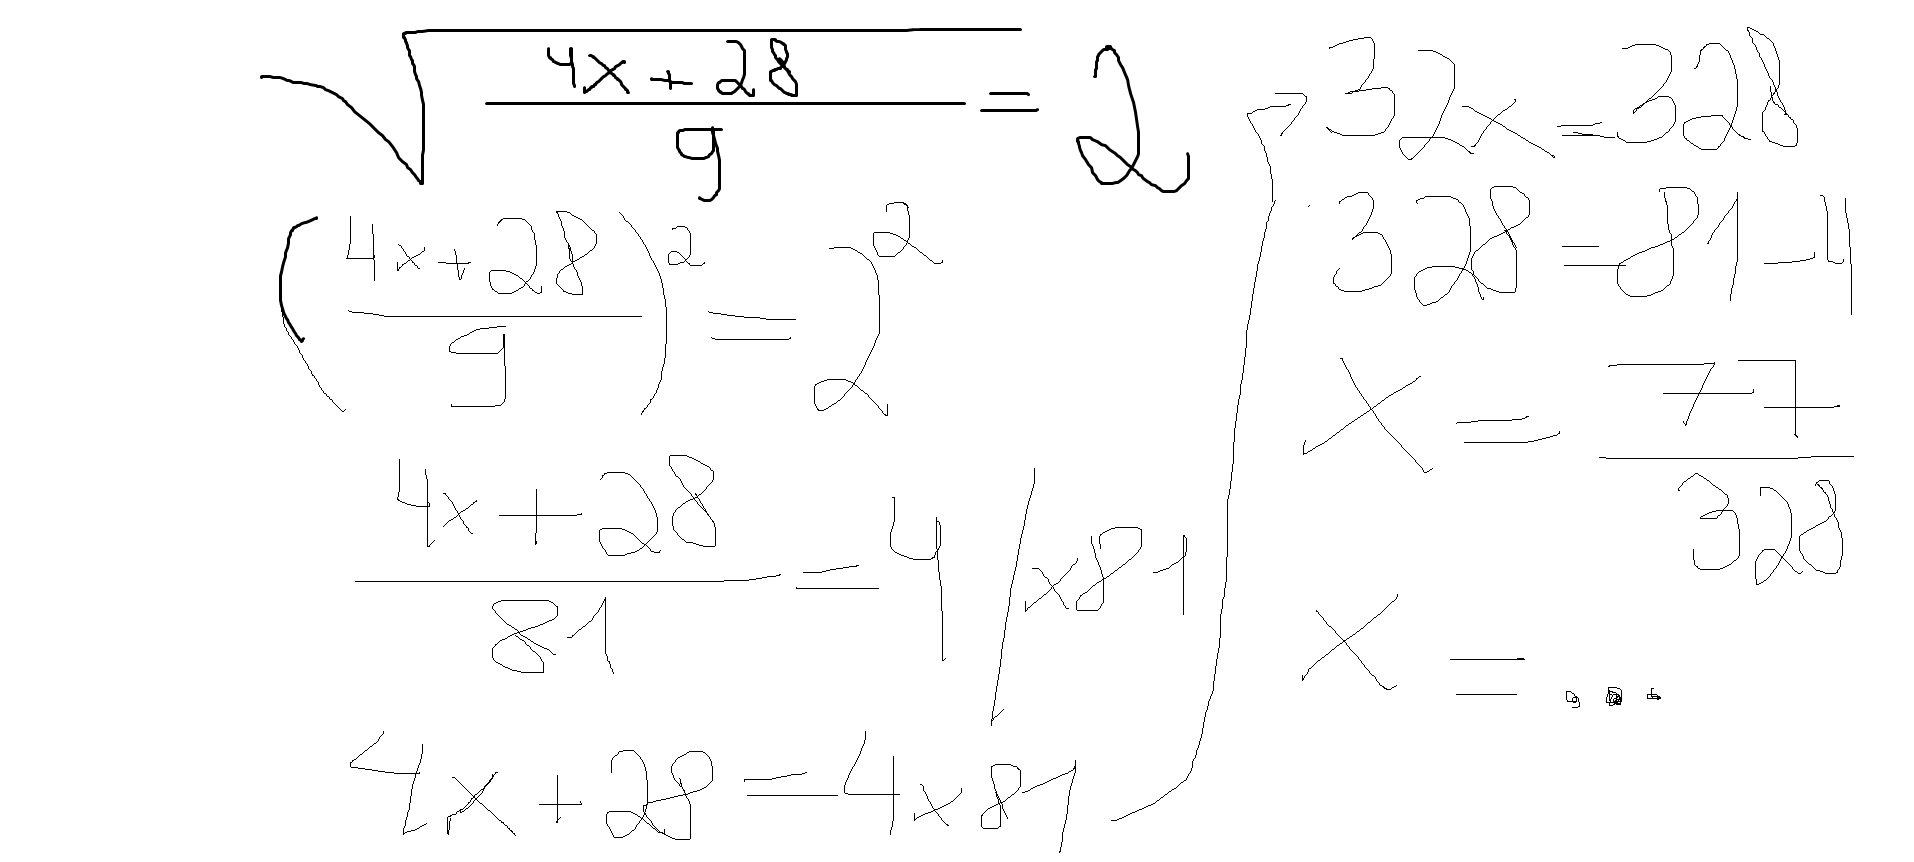 √((4x+28)/9) = 2
((4x+28)/9)² = 2²
(4x+28)/81 = 4 /x81
4x+28=4x81
32x=328
328=81-4
x=77/328
x=...